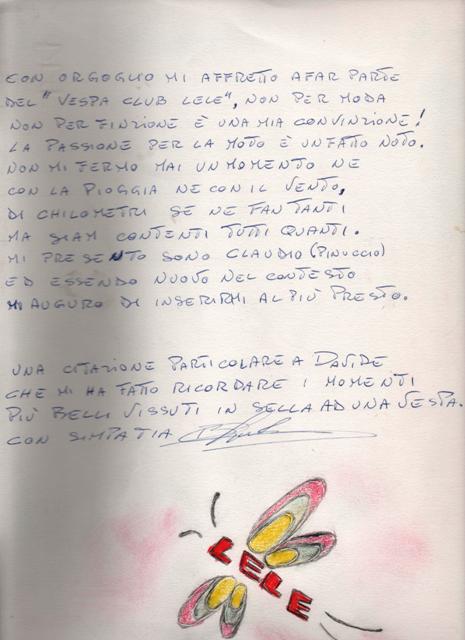 CON ORGOGLIO MI AFFRETTO A FAR PARTE
DEL "VESPA CLUB LELE", NON PER MODA
NON PER FINZIONE È UNA MIA CONVINZIONE!
LA PASSIONE PER LA MOTO È UN FATTO NOTO.
NON MI FERMO MAI UN MOMENTO NE
CON LA PIOGGIA NE CON IL VENTO,
DI CHILOMETRI SE NE FAN TANTI
MA SIAM CONTENTI TUTTI QUANTI.
MI PRESENTO SONO CLAUDIO (PINUCCIO)
ED ESSENDO NUOVO NEL CONTESTO
MI AUGURO DI INSERIRMI AL PIÙ PRESTO.
UNA CITAZIONE PARTICOLARE A DAVIDE
CHE MI HA FATTO RICORDARE I MOMENTI
PIÙ BELLI VISSUTI IN SELLA AD UNA VESPA.
CON SIMPATIA
LELE
LELE